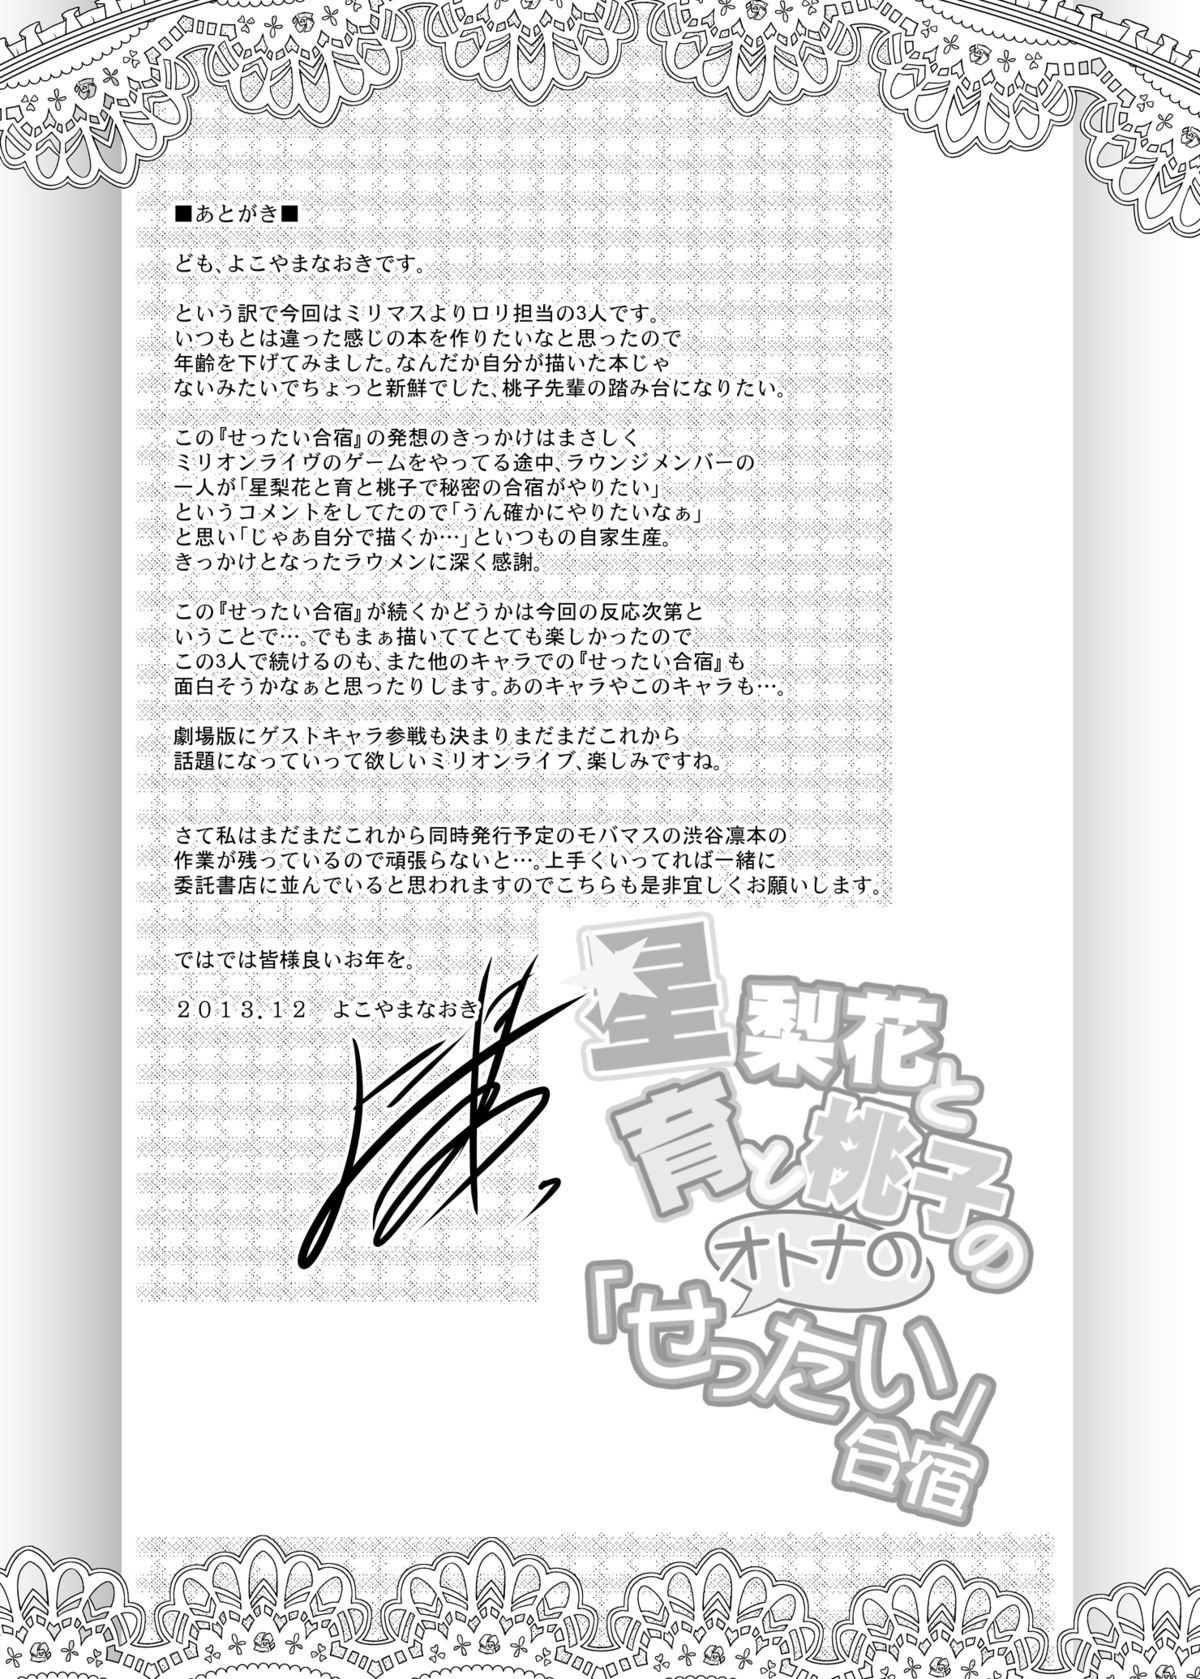 ■あとがき■
ども、よこやまなおきです。
という訳で今回はミリマスよりロリ担当の3人です。
いつもとは違った感じの本を作りたいなと思ったので
年齢を下げてみました。なんだか自分が描いた本じゃ
ないみたいでちょっと新鮮でした、桃子先輩の踏み台になりたい。
この『せったい合宿』の発想のきっかけはまさしく
ミリオンライヴのゲームをやってる途中、ラウンジメンバーの
一人が「星梨花と育と桃子で秘密の合宿がやりたい」
というコメントをしてたので「うん確かにやりたいなぁ」
と思い「じゃあ自分で描くか…」といつもの自家生産。
きっかけとなったラウメンに深く感謝。
この『せったい合宿』が続くかどうかは今回の反応次第と
いうことで…。でもまぁ描いててとても楽しかったので
この3人で続けるのも、また他のキャラでの『せったい合宿』も
面白そうかなぁと思ったりします。あのキャラやこのキャラも…。
劇場版にゲストキャラ参戦も決まりまだまだこれから
話題になっていって欲しいミリオンライブ、楽しみですね。
さて私はまだまだこれから同時発行予定のモバマスの渋谷凛本の
作業が残っているので頑張らないと…。上手くいってれば一緒に
委託書店に並んでいると思われますのでこちらも是非宜しくお願いします。
ではでは皆様良いお年を。
２０１３．１２　よこやまなおき
星梨花と
育と桃子の
オトナの
「せったい」
合宿